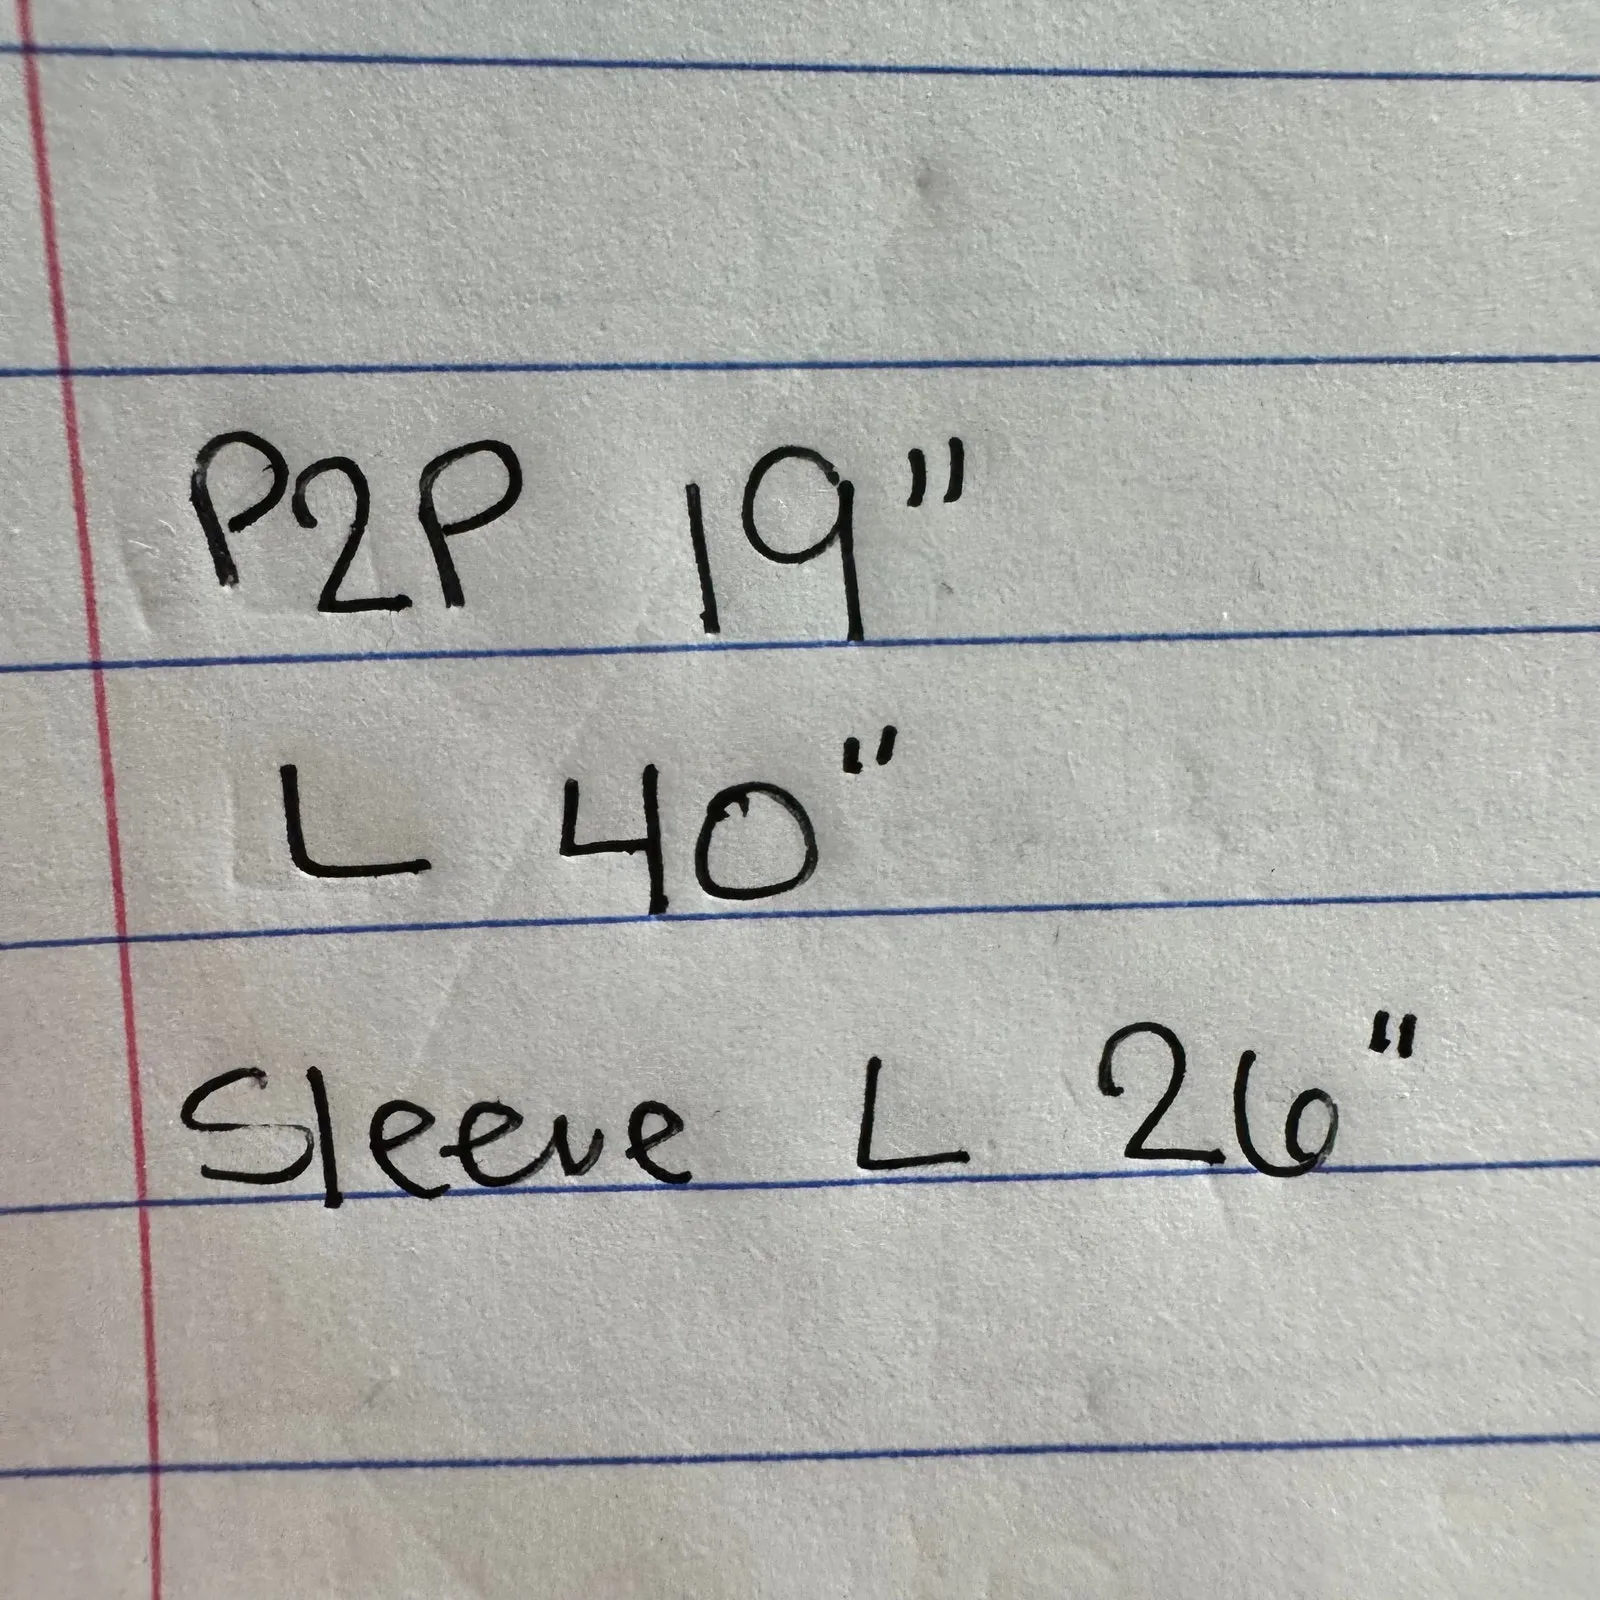 P2P 19"
L 40"
Sleeve L 26"